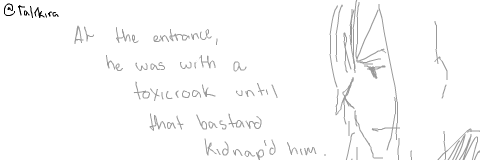 @Talrkira
At the entrance,
he was with a
toxicroak until
that bastard
kidnap'd him.